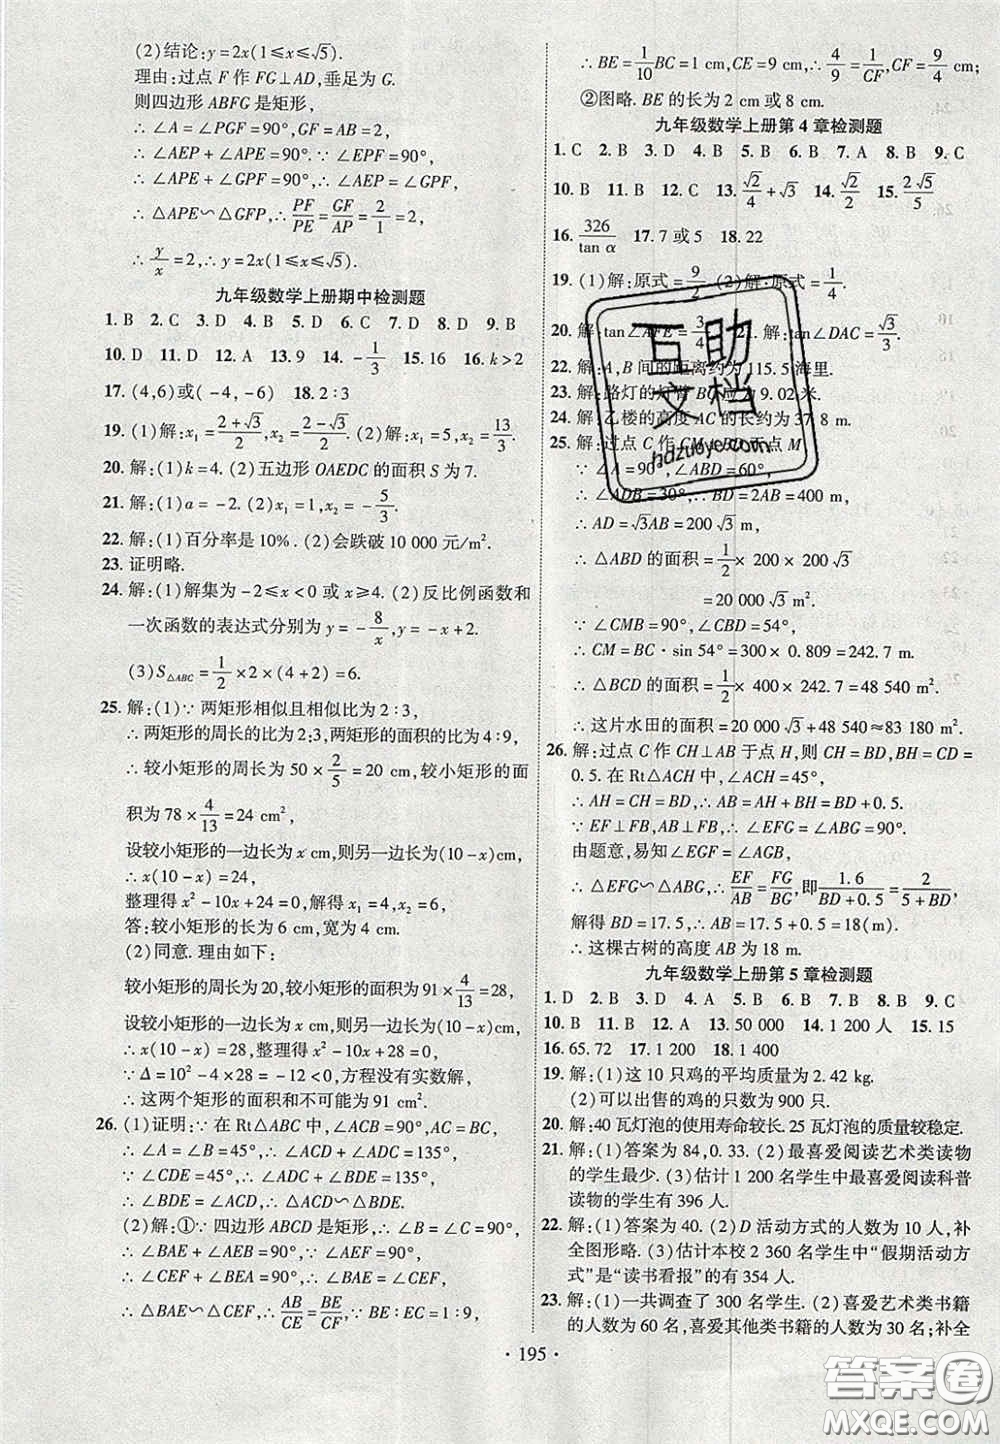 (2)结论:y=2x(1≤x≤√5).
理由:过点 F 作 FG⊥AD,垂足为 G.
则四边形 ABFG 是矩形,
∴∠A=∠PGF=90°,GF=AB=2,
∴∠AEP+∠APE=90°.∵∠EPF=90°,
∴∠APE+∠GPF=90°,∴∠AEP=∠GPF,
∴△APE∽△GFP,∴PF/PE=GF/AP=2/1=2,
∴y/x=2,∴y=2x(1≤x≤√5).
九年级数学上册期中检测题
1. B 2. C 3. D 4. D 5. D 6. C 7. D 8. C 9. B
10. D 11. D 12. A 13. 9 14. -1/3 15. 16 16. k>2
17. (4,6)或(-4,-6) 18. 2∶3
19. (1)解:x₁=(2+√3)/2,x₂=(2-√3)/2. (2)解:x₁=5,x₂=13/3.
20. 解:(1)k=4. (2)五边形 OAEDC 的面积 S 为 7.
21. 解:(1)a=-2. (2)x₁=1,x₂=-5/3.
22. 解:(1)百分率是 10%. (2)会跌破 10 000 元/m².
23. 证明略.
24. 解:(1)解集为-2≤x<0 或 x≥4. (2)反比例函数和
一次函数的表达式分别为 y=-8/x,y=-x+2.
(3)S△ABC=1/2×2×(4+2)=6.
25. 解:(1)∵两矩形相似且相似比为 2∶3,
∴两矩形的周长的比为 2:3,两矩形的面积的比为 4∶9,
∴较小矩形的周长为 50×2/5=20 (cm),较小矩形的面
积为 78×4/13=24 cm²,
设较小矩形的一边长为 x cm,则另一边长为(10-x)cm,
∴x(10-x)=24,
整理得 x²-10x+24=0,解得 x₁=4,x₂=6,
答:较小矩形的长为 6 cm,宽为 4 cm.
(2)同意. 理由如下:
较小矩形的周长为 20,较小矩形的面积为 91×4/13=28,
设较小矩形的一边长为 x cm,则另一边长为(10-x)cm,
∴x(10-x)=28,整理得 x²-10x+28=0,
∵Δ=10²-4×28=-12<0,∴原方程无实数解,
∴这两个矩形的面积和不可能为 91 cm².
26. (1)证明:∵在 Rt△ABC 中,∠ACB=90°,AC=BC,
∴∠A=∠B=45°,∴∠ACD+∠ADC=135°,
∵∠CDE=45°,∴∠ADC+∠BDE=135°,
∴∠BDE=∠ACD,∴△ACD∽△BDE.
(2)解:①∵四边形 ABCD 是矩形,∴∠B=∠C=90°,
∴∠BAE+∠AEB=90°,∵∠AEF=90°,
∴∠CEF+∠BEA=90°,∴∠BAE=∠CEF,
∴△BAE∽△CEF,∴AB/CE=BE/CF,∵BE∶EC=1∶9,
∴BE=1/10BC=1 cm,CE=9 cm,∴4/9=1/CF,CF=9/4 cm;
②图略. BE 的长为 2 cm 或 8 cm.
九年级数学上册第 4 章检测题
1. C 2. B 3. D 4. B 5. B 6. B 7. A 8. B 9. C
10. B 11. B 12. D 13. √2/4+√3 14. √2/2 15. 2√5/5
16. 326/tan α 17. 7 或 5 18. 22
19. (1)解:原式=9/2. (2)解:原式=√3/2.
20. 解:tan∠AFE=3/4. 21. 解:tan∠DAC=√3/3.
22. 解:A,B 间的距离约为 115.5 海里.
23. 解:路灯的灯臂 BC 应为 9.02 米.
24. 解:乙楼的高度 AC 的长约为 37.8 m.
25. 解:过点 C 作 CM⊥BD 于点 M
∵∠A=90°,∠ABD=60°,
∴∠ADB=30°,∴BD=2AB=400 m,
∴AD=√3AB=200√3 m,
∴△ABD 的面积=1/2×200×200√3
=20 000√3 m².
∵∠CMB=90°,∠CBD=54°,
∴CM=BC·sin 54°=300×0.809=242.7 m.
∴△BCD 的面积=1/2×400×242.7=48 540 m².
∴这片水田的面积=20 000√3+48 540≈83 180 m².
26. 解:过点 C 作 CH⊥AB 于点 H,则 CH=BD,BH=CD=
0.5. 在 Rt△ACH 中,∠ACH=45°,
∴AH=CH=BD,∴AB=AH+BH=BD+0.5.
∵EF⊥FB,AB⊥FB,∴∠EFG=∠ABG=90°.
由题意,易知∠EGF=∠AGB,
∴△EFG∽△ABG,∴EF/AB=FG/BG,即1.6/(BD+0.5)=2/(5+BD),
解得 BD=17.5,∴AB=17.5+0.5=18(m).
∴这棵古树的高度 AB 为 18 m.
九年级数学上册第 5 章检测题
1. D 2. B 3. D 4. D 5. D 6. B 7. D 8. B 9. C
10. B 11. B 12. A 13. 50 000 14. 1 200 人 15. 15
16. 65.72 17. 1 200 18. 1 400
19. 解:(1)这 10 只鸡的平均质量为 2.42 kg.
(2)可以出售的鸡的只数为 900 只.
20. 解:40 瓦灯泡的使用寿命较长. 25 瓦灯泡的质量较稳定.
21. 解:(1)答案为 84,0.33. (2)最喜爱阅读艺术类读物
的学生最少. (3)估计 1 200 名学生中最喜爱阅读科普
读物的学生有 396 人.
22. 解:(1)答案为 40. (2)D 活动方式的人数为 10 人,补
全图形略. (3)估计本校 2 360 名学生中“假期活动方
式”是“读书看报”的有 354 人.
23. 解:(1)一共调查了 300 名学生. (2)喜爱艺术类书籍
的人数为 60 名,喜爱其他类书籍的人数为 30 名;补全
·195·
互助
文档
hdzuoye.com
答案圈
MXQE.COM